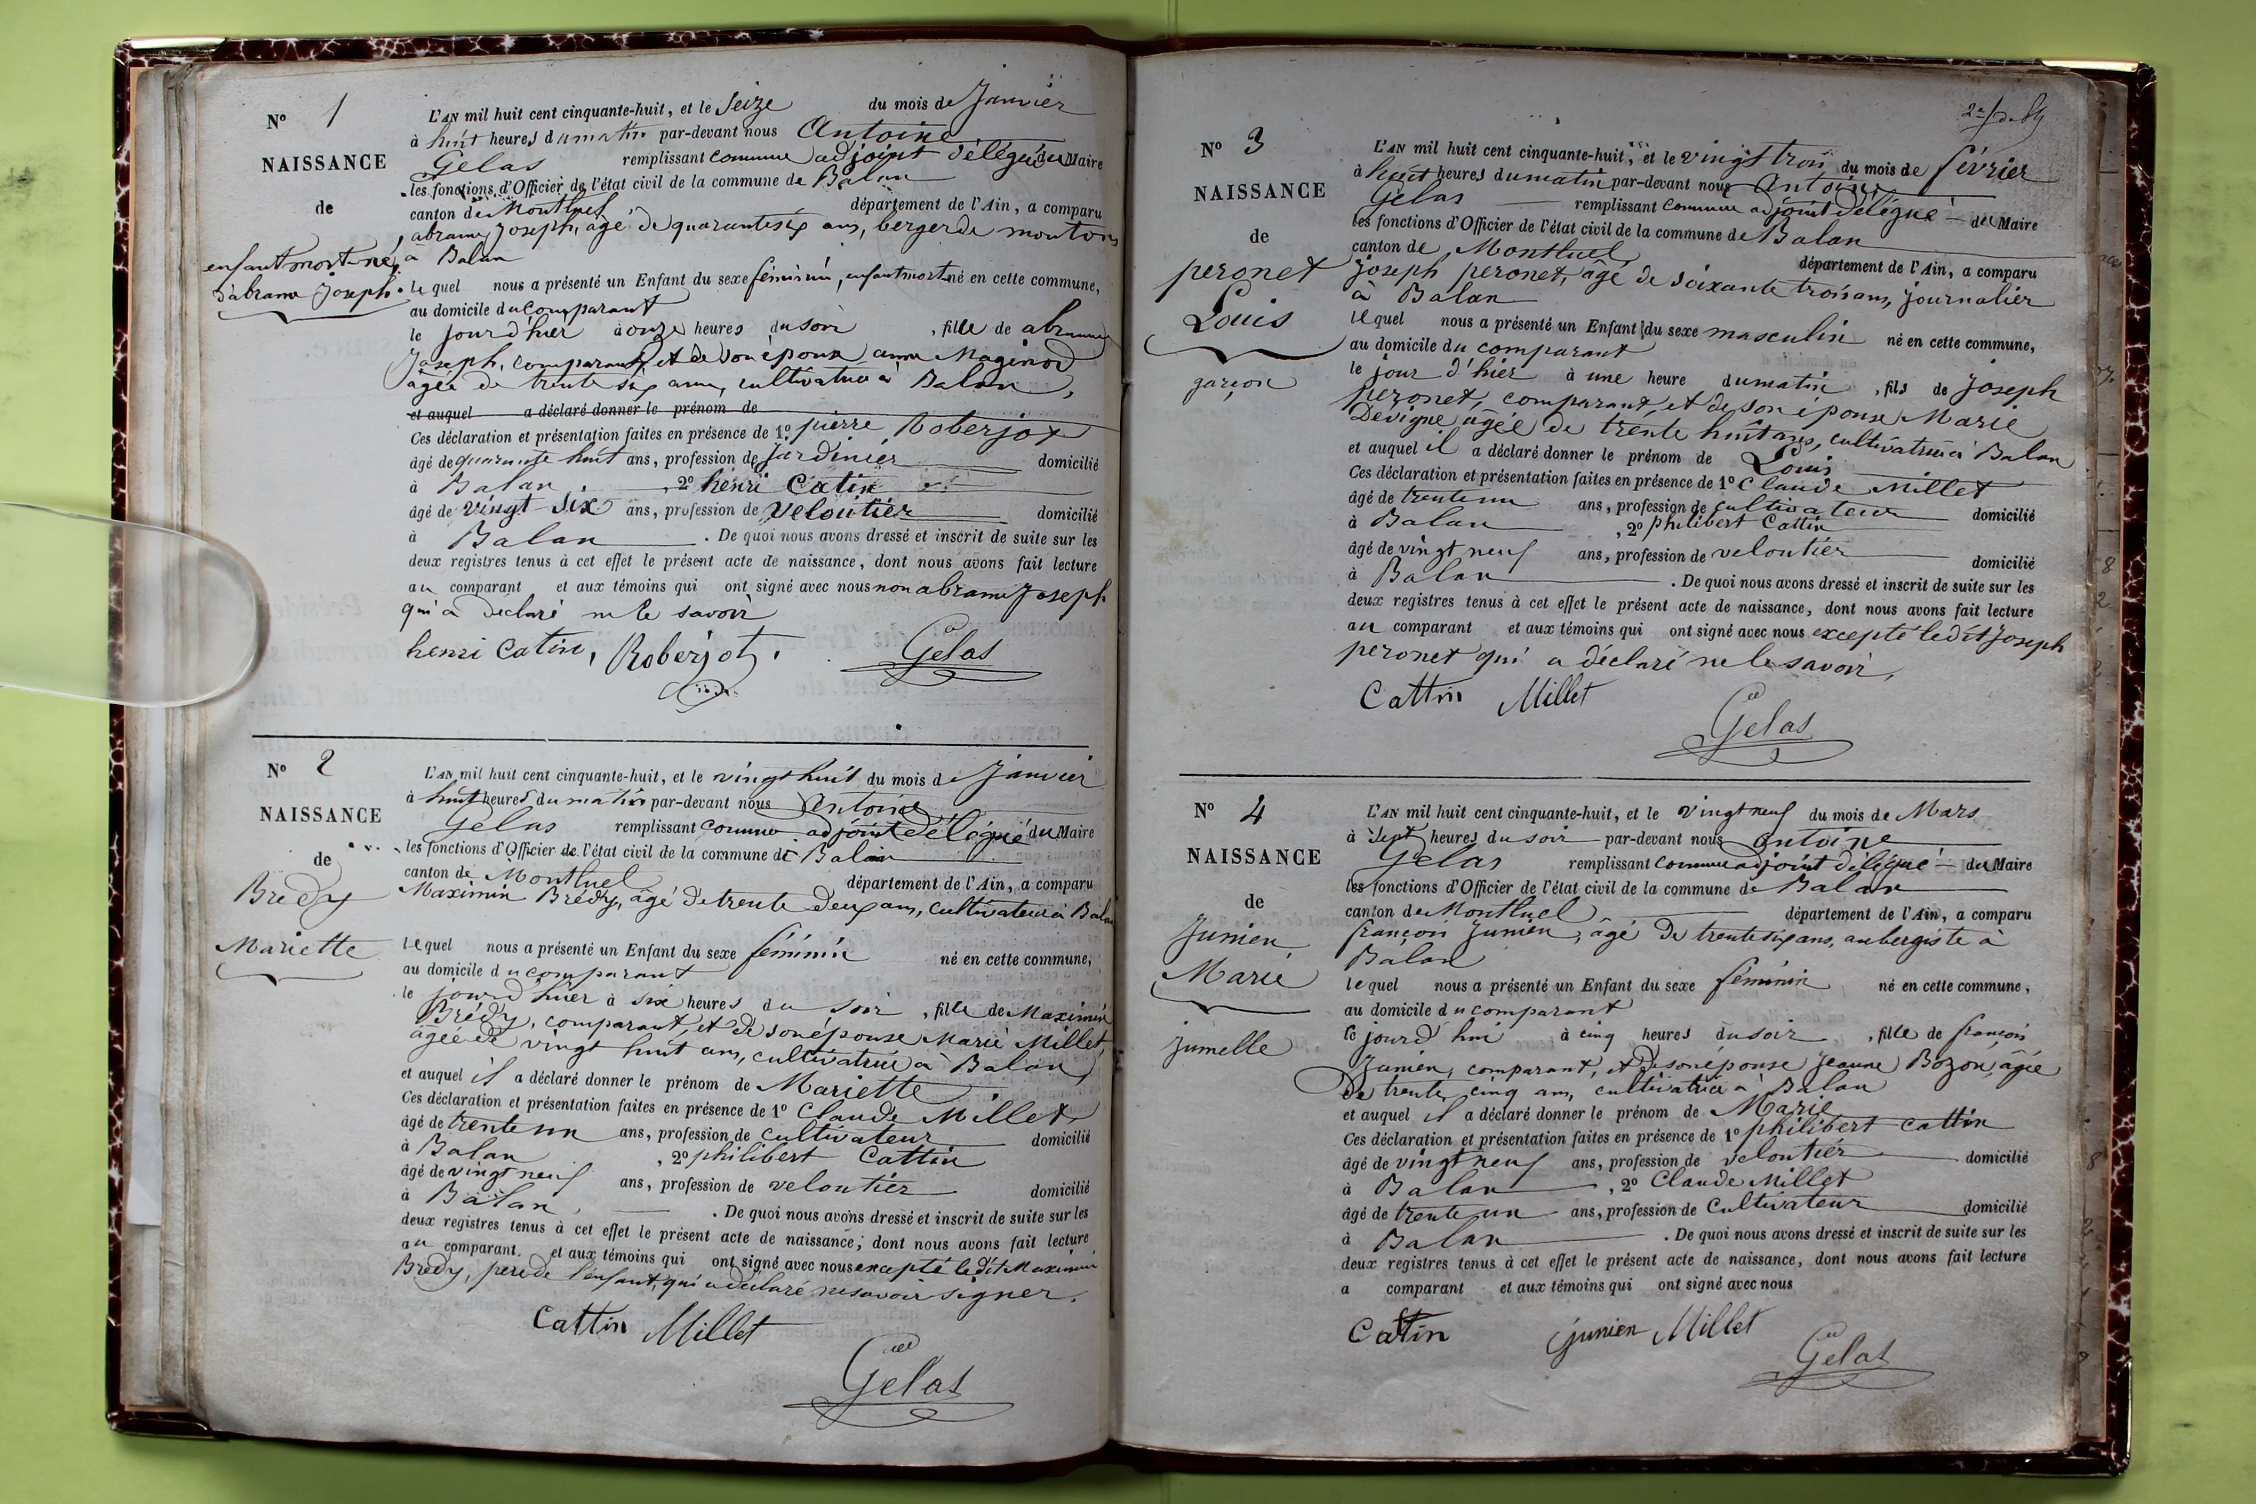 N° 1
NAISSANCE
de
enfant mort né,
d'abrame Joseph.
L'AN mil huit cent cinquante-huit, et le seize du mois de Janvier
à huit heures du matin par-devant nous Antoine
Gelas remplissant comme adjoint délégué du Maire
les fonctions d'Officier de l'état civil de la commune de Balan
canton de Montluel département de l'Ain, a comparu
abrame Joseph, agé de quarante six ans, berger de moutons
à Balan
lequel nous a présenté un Enfant du sexe féminin, enfant mort né en cette commune,
au domicile du comparant
le jour d'hier à onze heures du soir, fille de abrame
Joseph, comparant, et de son épouse anne Maginod
agée de trente six ans, cultivatrice à Balan,
et auquel a déclaré donner le prénom de
Ces déclaration et présentation faites en présence de 1° pierre Roberjot
âgé de quarante huit ans, profession de Jardinier domicilié
à Balan, 2° henri Catin
âgé de vingt six ans, profession de veloutier domicilié
à Balan. De quoi nous avons dressé et inscrit de suite sur les
deux registres tenus à cet effet le présent acte de naissance, dont nous avons fait lecture
au comparant et aux témoins qui ont signé avec nous non abrame Joseph
qui a déclaré ne le savoir
henri Catin, Roberjot. Gelas
N° 2
NAISSANCE
de
Brédy
Mariette
L'AN mil huit cent cinquante-huit, et le vingt huit du mois de Janvier
à huit heures du matin par-devant nous Antoine
Gelas remplissant comme adjoint délégué du Maire
les fonctions d'Officier de l'état civil de la commune de Balan
canton de Montluel département de l'Ain, a comparu
Maximin Brédy, âgé de trente deux ans, cultivateur à Balan
lequel nous a présenté un Enfant du sexe féminin né en cette commune,
au domicile du comparant
le jour d'hier à six heures du soir, fille de Maximin
Brédy, comparant, et de son épouse Marie Millet,
âgée de vingt huit ans, cultivatrice à Balan,
et auquel il a déclaré donner le prénom de Mariette
Ces déclaration et présentation faites en présence de 1° Claude Millet,
âgé de trente un ans, profession de cultivateur domicilié
à Balan, 2° philibert Cattin
âgé de vingt neuf ans, profession de veloutier domicilié
à Balan. De quoi nous avons dressé et inscrit de suite sur les
deux registres tenus à cet effet le présent acte de naissance, dont nous avons fait lecture
au comparant. et aux témoins qui ont signé avec nous excepté ledit Maximin
Brédy, père de l'enfant, qui a déclaré ne savoir signer.
Cattin Millet
Gelas
N° 3
NAISSANCE
de
peronet
Louis
garçon
L'AN mil huit cent cinquante-huit, et le vingt trois du mois de février
à huit heures du matin par-devant nous Antoine
Gelas remplissant comme adjoint délégué du Maire
les fonctions d'Officier de l'état civil de la commune de Balan
canton de Montluel, département de l'Ain, a comparu
joseph peronet, âgé de soixante trois ans, journalier
à Balan
lequel nous a présenté un Enfant du sexe masculin né en cette commune,
au domicile du comparant
le jour d'hier à une heure du matin, fils de Joseph
peronet, comparant, et de son épouse Marie
Devigne âgée de trente huit ans, cultivatrice à Balan
et auquel il a déclaré donner le prénom de Louis
Ces déclaration et présentation faites en présence de 1° Claude Millet
âgé de trente un ans, profession de cultivateur domicilié
à Balan, 2° philibert Cattin
âgé de vingt neuf ans, profession de veloutier domicilié
à Balan. De quoi nous avons dressé et inscrit de suite sur les
deux registres tenus à cet effet le présent acte de naissance, dont nous avons fait lecture
au comparant et aux témoins qui ont signé avec nous excepté ledit Joseph
peronet qui a déclaré ne le savoir,
Cattin Millet
Gelas
N° 4
NAISSANCE
de
Junien
Marie
jumelle
L'AN mil huit cent cinquante-huit, et le vingt neuf du mois de Mars
à Sept heures du soir par-devant nous antoine
Gelas remplissant comme adjoint délégué du Maire
les fonctions d'Officier de l'état civil de la commune de Balan
canton de Montluel département de l'Ain, a comparu
françois Junien, âgé de trente six ans, aubergiste à
Balan
lequel nous a présenté un Enfant du sexe féminin né en cette commune,
au domicile du comparant
le jourd'hui à cinq heures du soir, fille de françois
Junien, comparant, et de son épouse Jeanne Bozon, âgée
de trente cinq ans, cultivatrice à Balan
et auquel il a déclaré donner le prénom de Marie
Ces déclaration et présentation faites en présence de 1° philibert Cattin
âgé de vingt neuf ans, profession de veloutier domicilié
à Balan, 2° Claude Millet
âgé de trente un ans, profession de Cultivateur domicilié
à Balan. De quoi nous avons dressé et inscrit de suite sur les
deux registres tenus à cet effet le présent acte de naissance, dont nous avons fait lecture
a comparant et aux témoins qui ont signé avec nous
Cattin junien Millet
Gelas